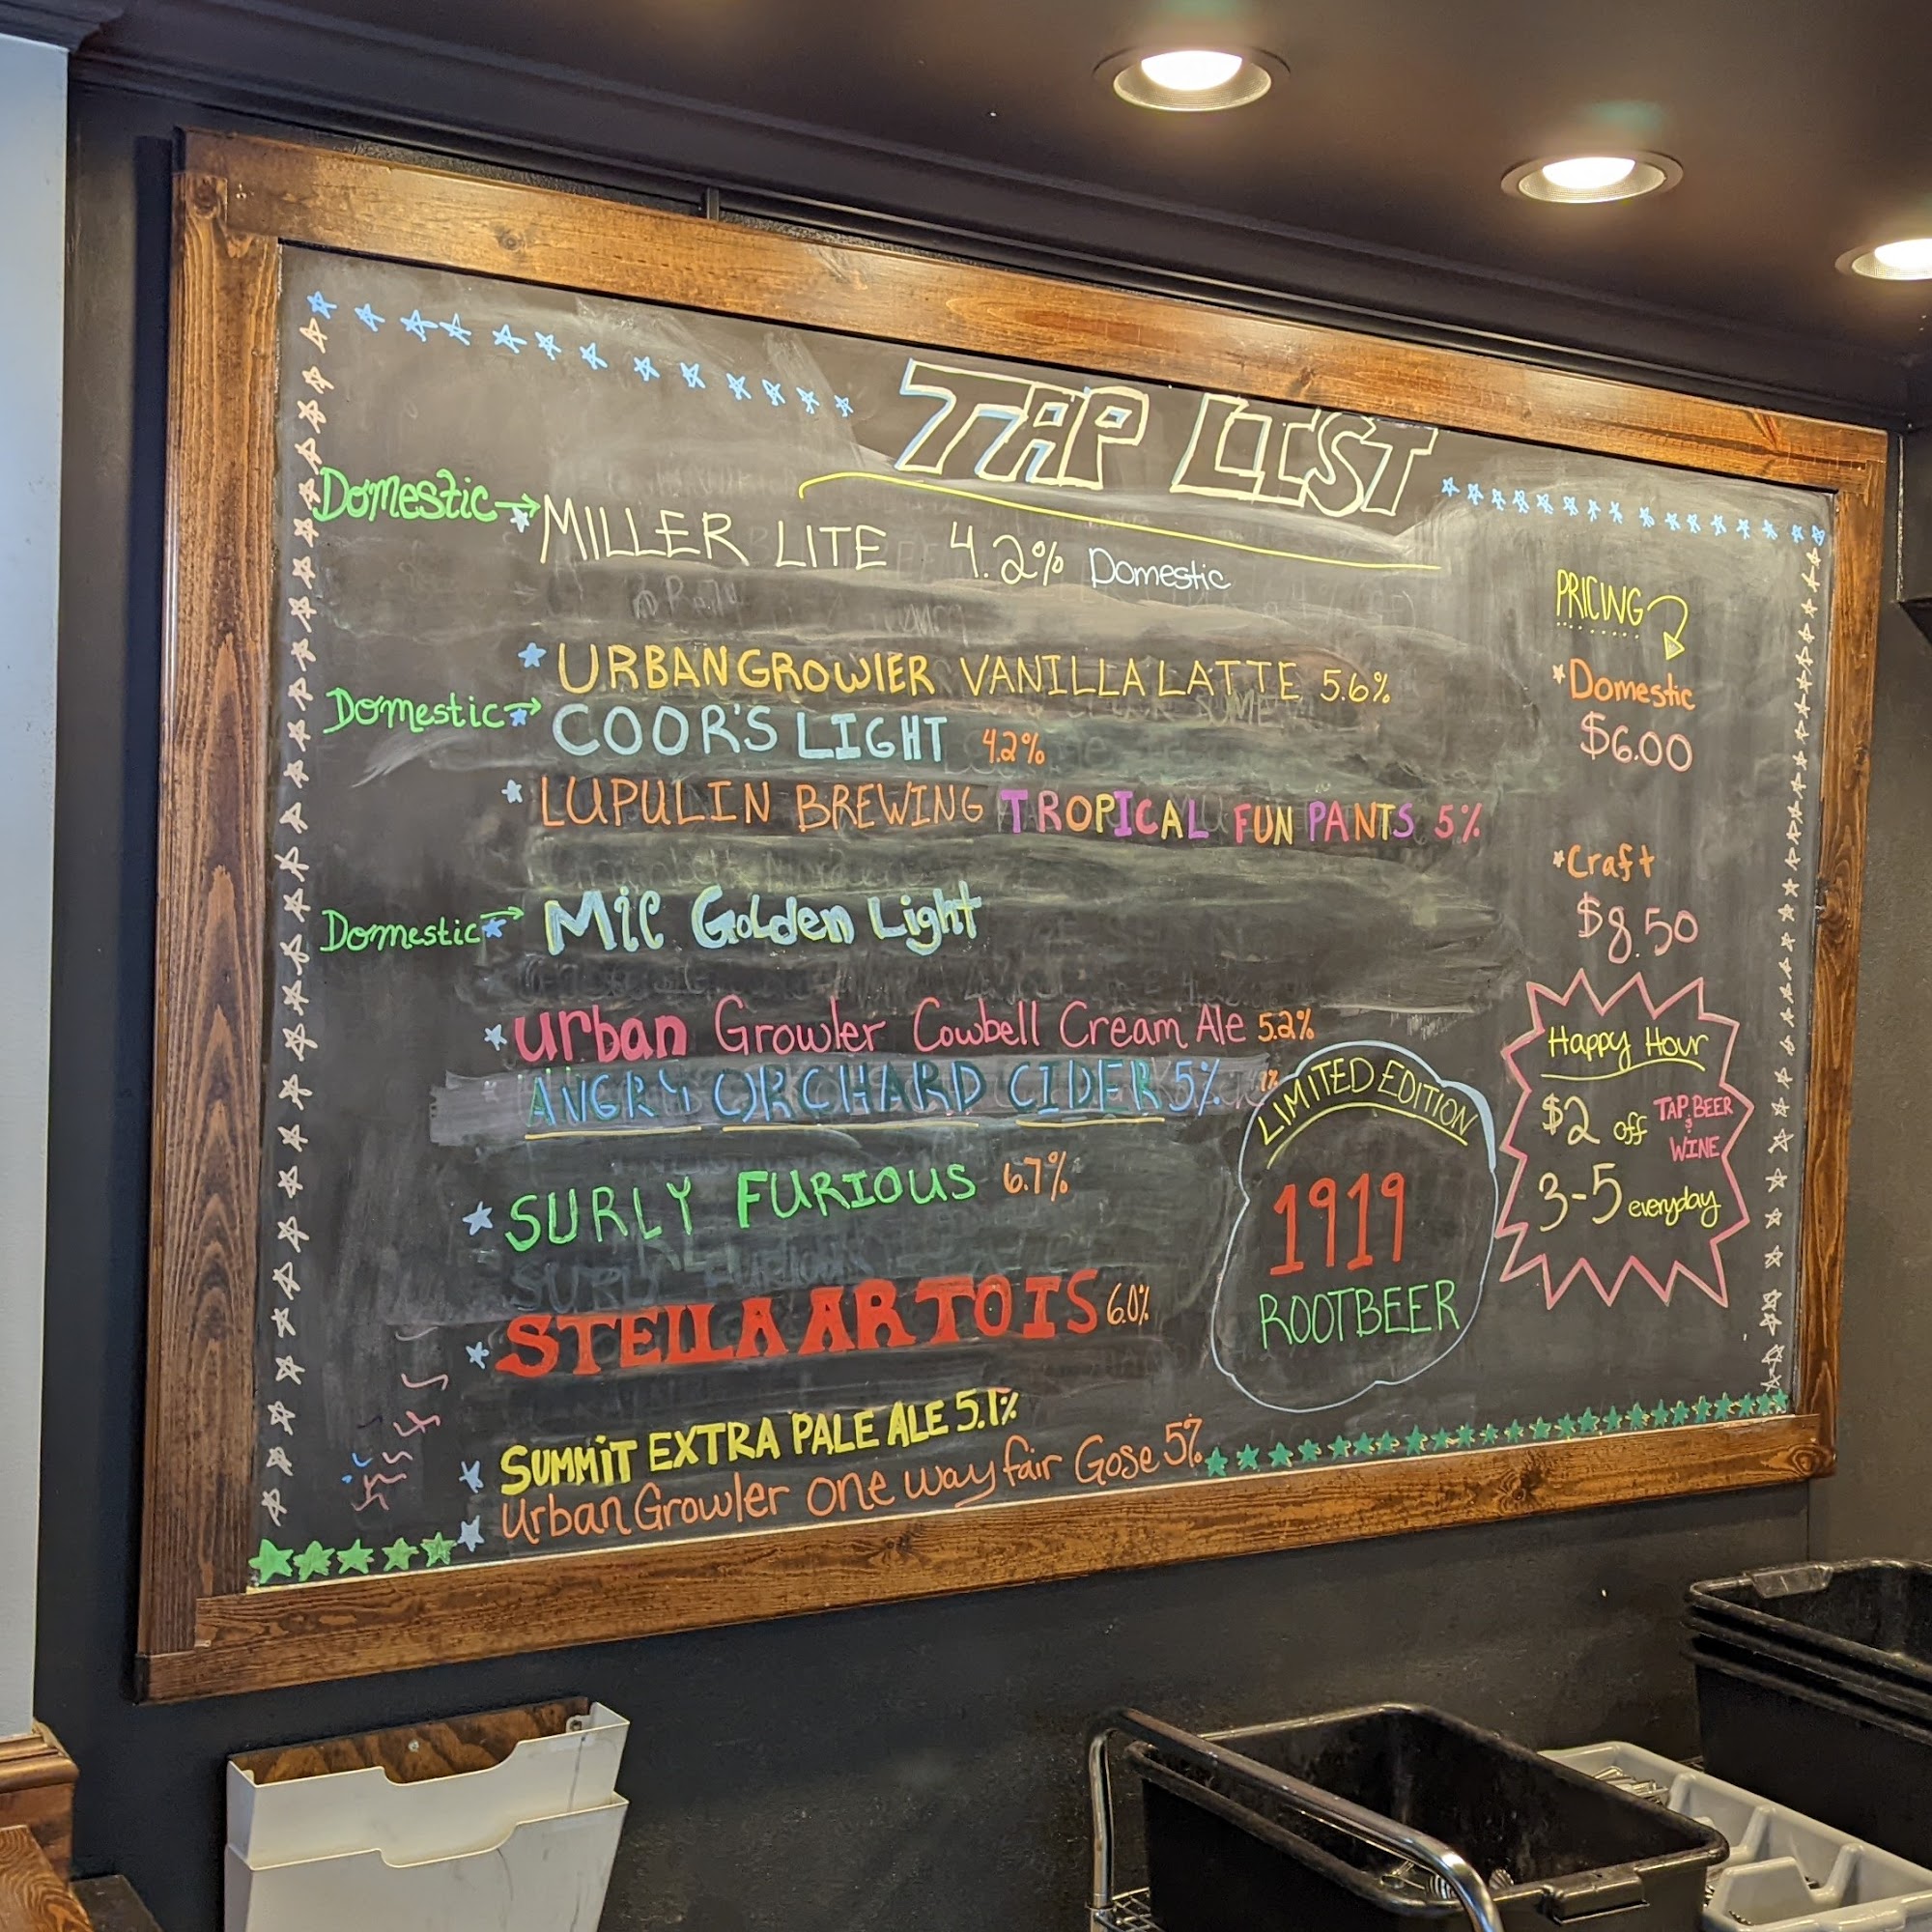 TAP LIST
Domestic → MILLER LITE 4.2% Domestic
URBAN GROWLER VANILLA LATTE 5.6%
Domestic → COOR'S LIGHT 4.2%
LUPULIN BREWING TROPICAL FUN PANTS 5%
Domestic → Mic Golden Light
Urban Growler Cowbell Cream Ale 5.2%
ANGRY ORCHARD CIDER 5%
SURLY FURIOUS 6.7%
STELLA ARTOIS 6.0%
SUMMIT EXTRA PALE ALE 5.1%
Urban Growler one way fair Gose 5%
LIMITED EDITION
1919
ROOTBEER
PRICING
Domestic
$6.00
Craft
$8.50
Happy Hour
$2 off TAP BEER
&
WINE
3-5 everyday